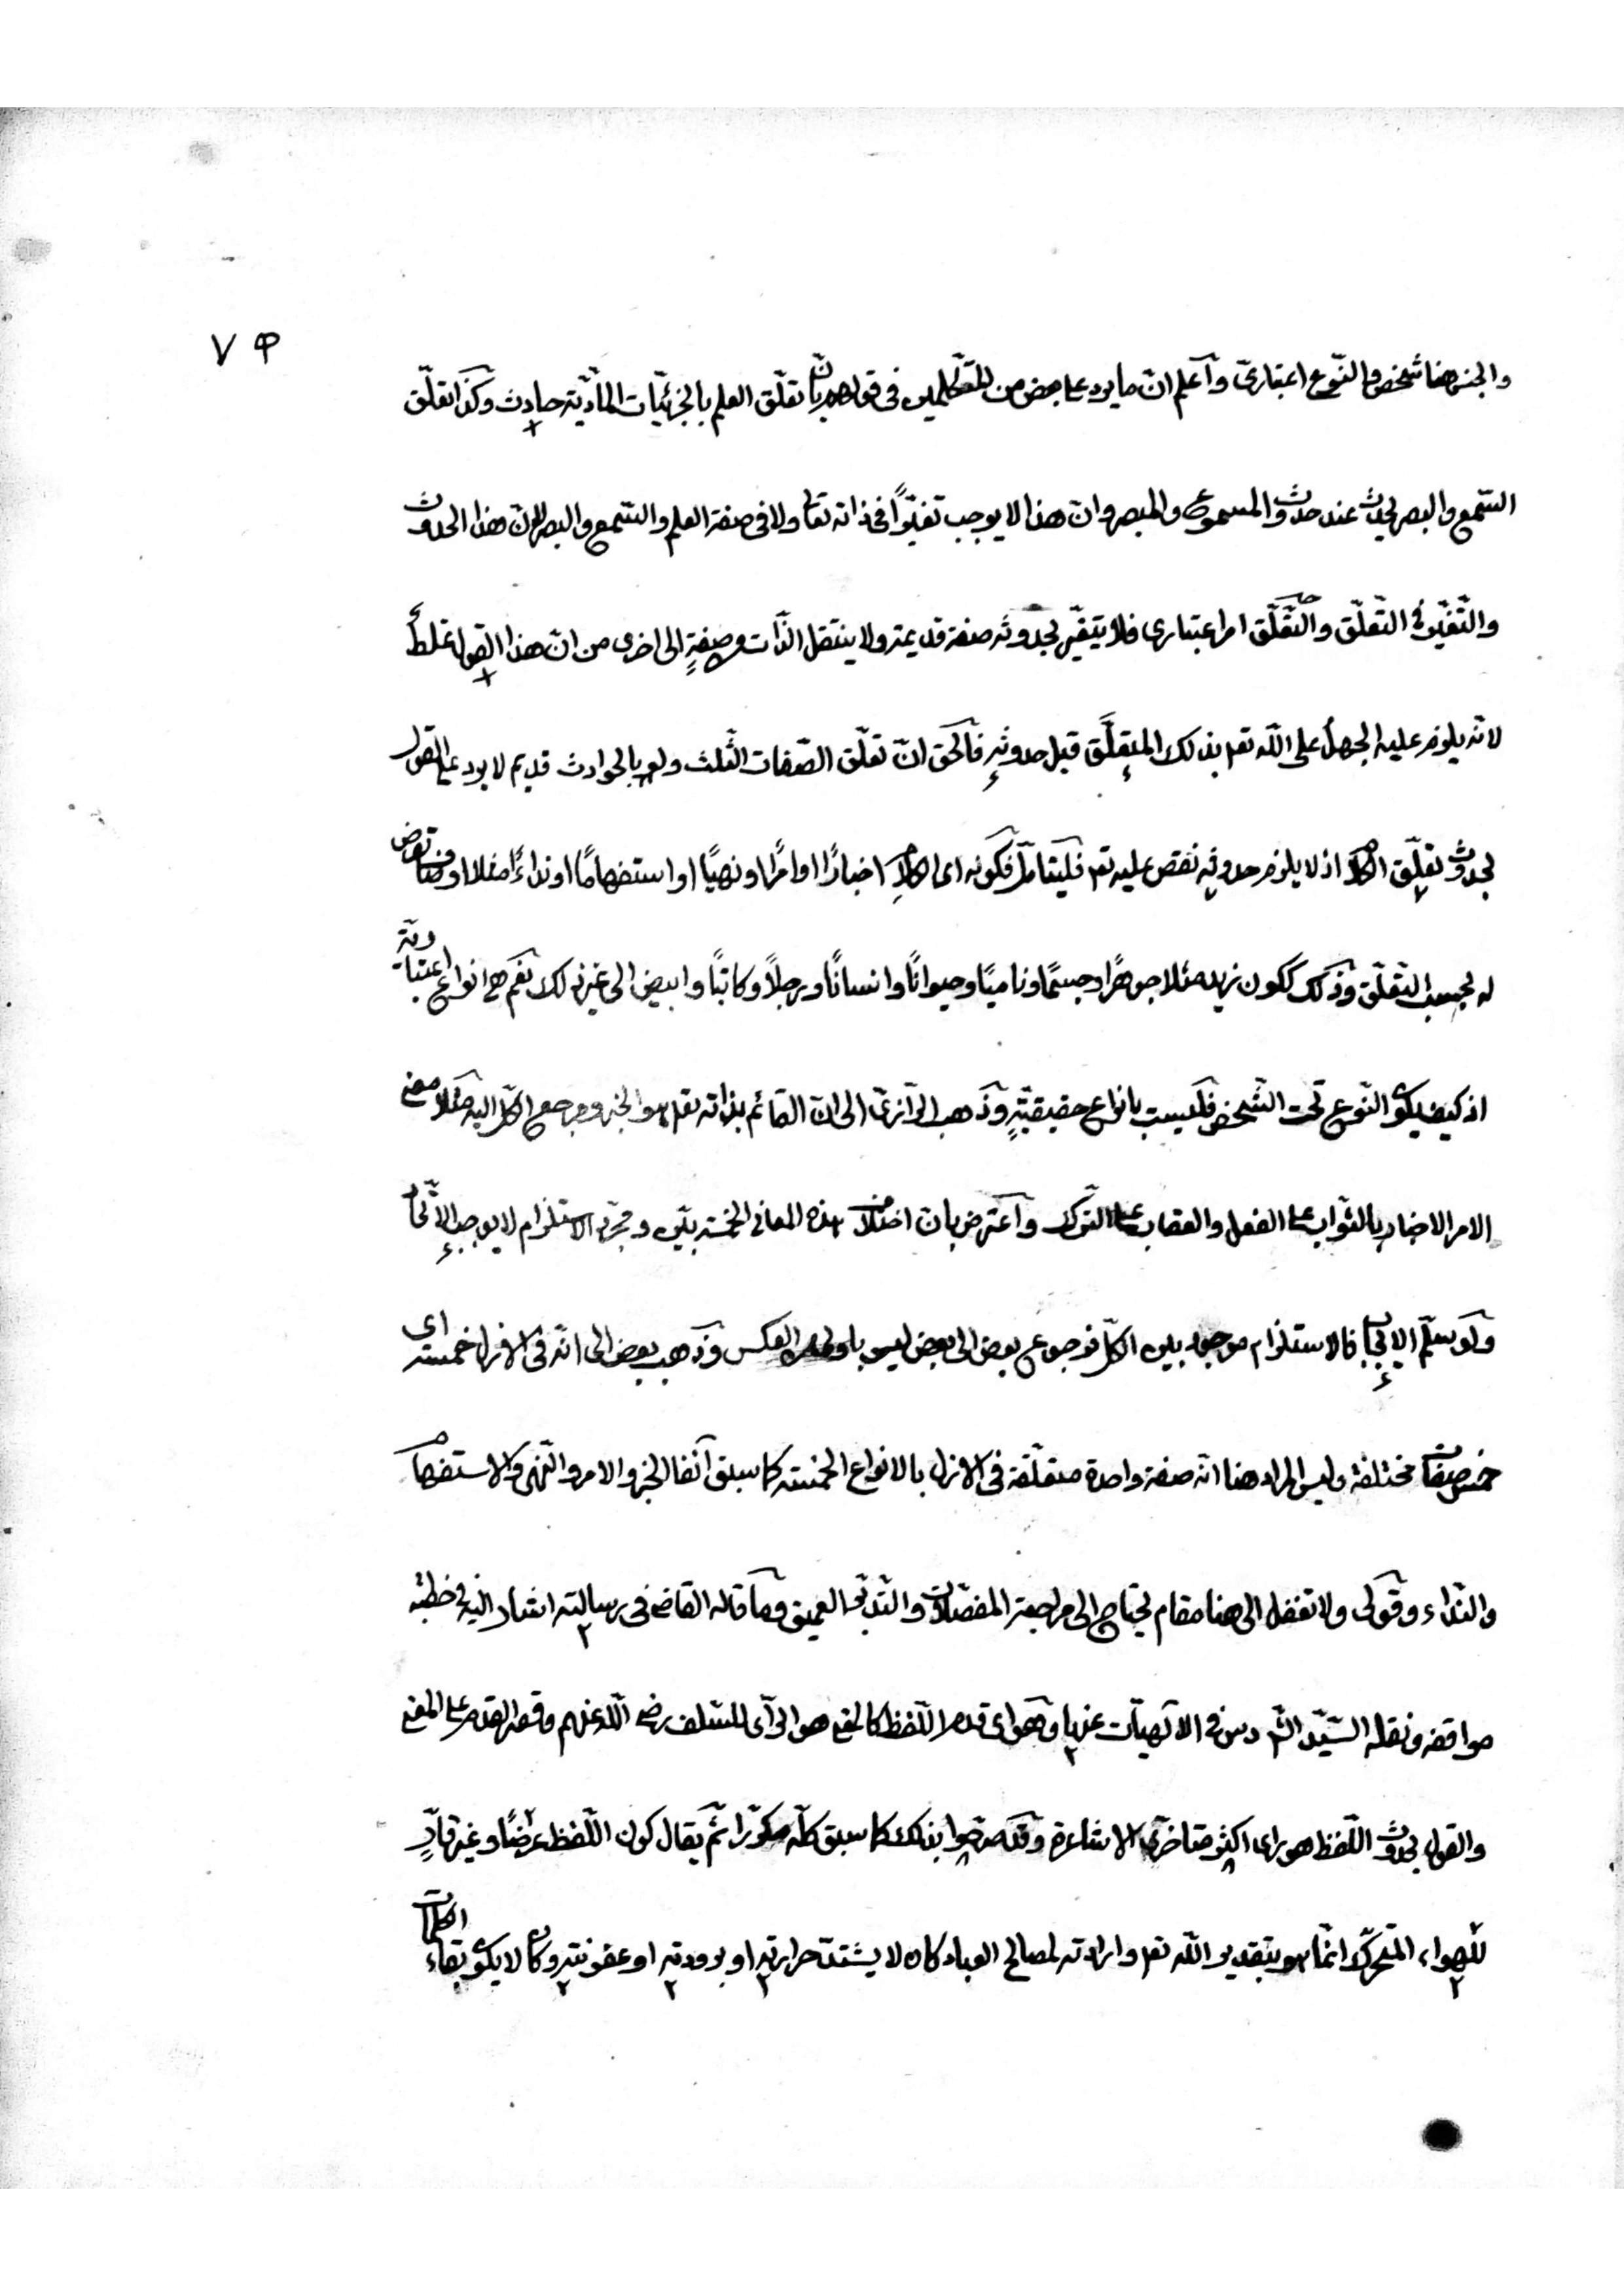 ٧٩
والجنس هنا شخص والنّوع اعتباريّ وآعلم انّ ما يرد على بعض من المتكلمين فى قولهم بانّ تعلّق العلم بالجزئيّات المادّيّة حادث وكذا تعلّق
السّمع والبصر يحدث عند حدوث المسموع والمبصر وان هذا لا يوجب تغيّرًا فى ذاته تعالى ولا فى صفة العلم والسّمع والبصر لانّ هذا الحدوث
والتّغيّر فى التّعلّق والتّعلّق امر اعتبارى فلا يتغيّر بحدوثه صفة قديمة ولا ينتقل الذّات من صفةٍ الى اخرى من انّ هذا القول غلطٌ
لانّه يلزم عليه الجهل على اللّه تعم بذلك المتعلَّق قبل حدوثهِ فآلحق انّ تعلّق الصّفات الثّلث ولو بالحوادث قديم لا يرد على القول
بحدوث تعلّق الكلام اذ لا يلزم حدوثه نقص عليه تعم فليتأمل فكونه اى الكلامِ اخبارًا او امرًا او نهيًا او استفهامًا او نداءً مثلا اوصاف تعرض
له بحسب التّعلّق وذلك ككون زيد مثلا جوهرًا وجسمًا وناميًا وحيوانًا وانسانًا ورجلاً وكاتبًا وابيض الى غير ذلك نعم هى انواع اعتباريّة
اذ كيف يكون النّوع تحت الشّخص فليست بانواع حقيقيّةٍ وذهب الرّازىّ الى انّ القائم بذاته تعم هو الخبر ومرجع الكلّ اليه مثلا معنى
الامر الاخبار بالثّواب على الفعل والعقاب على التّرك وآعترض بان اختلاف هذه المعانى الخمسة بيّن ومجرّد الاستلزام لا يوجب الاتّحاد
ولو سلّم الايجاب فالاستلزام موجود بين الكلّ فرجوع بعض الى بعض ليس باولى من العكس وذهب بعض الى انّه فى الازل خمسة اى
خمس صفات مختلفة وليس المراد هنا انّه صفة واحدة متعلّقة فى الازل بالانواع الخمسة كما سبق آنفا الخبر والامر والنّهى والاستفهام
والنّداء وقولى ولا تغفل الى هنا مقام يحتاج الى مراجعة المفصّلات والتّدبّر العميق وما قاله القاضى فى رسالته اشار اليه فى خطبة
مواقفه ونقله السّيّد الشّ دس فى الالهيّات عنها وهو اى قدم اللّفظ كالمعنى هو الرّأى للسّلف رضى اللّه عنهم وقصر القدم على المعنى
والقول بحدوث اللّفظ هو رأى اكثر متأخّرى الاشاعرة وقد صرّحوا بذلك كما سبق كلّه مكرّرا ثمّ يقال كون اللّفظ عرضًا وغير قارٍّ
للهواء المتحرّك انّما هو بتقدير اللّه تعم وارادته لمصالح العباد كان لا يشتدّ حرارته او برودته او عفونته وكان لا يكون بقاء الكلمات